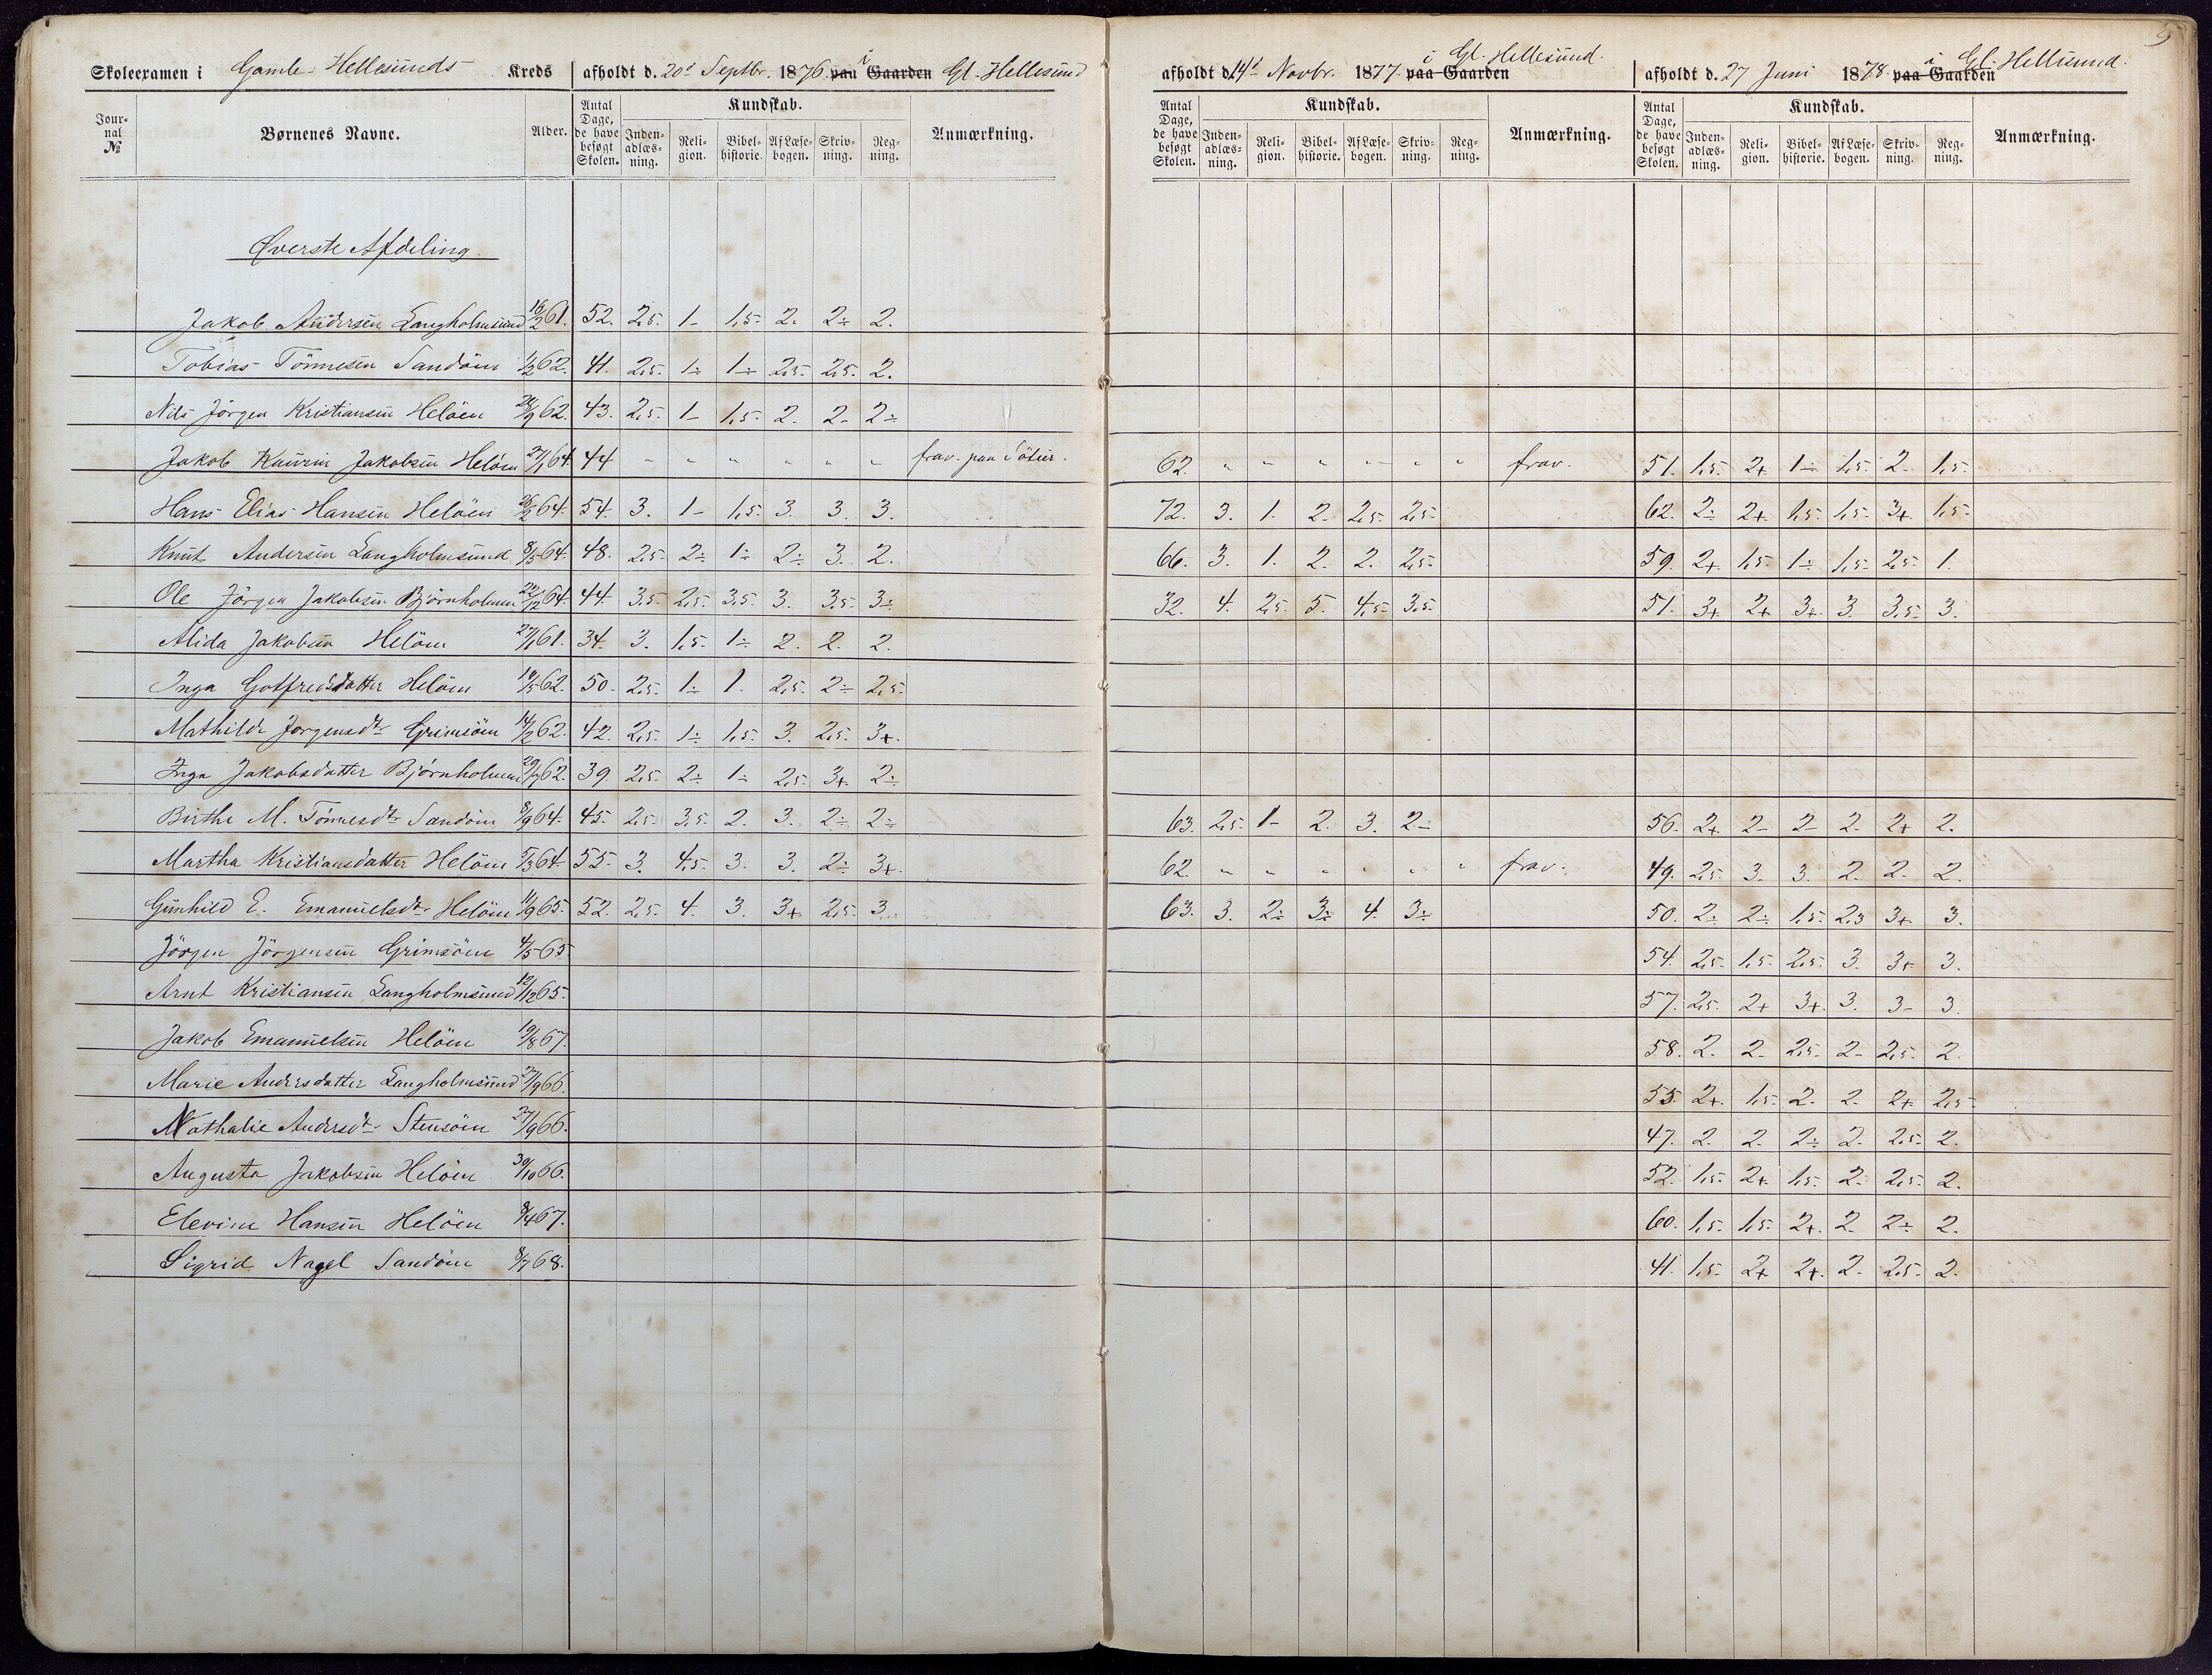 5
Skoleexamen i Gamle-Hellesunds Kreds afholdt d. 20d Septbr. 1876 paa Gaarden i Gl. Hellesund
afholdt d. 14d Novbr. 1877 paa Gaarden i Gl. Hellesund.
afholdt d. 27 Juni 1878 paa Gaarden i Gl. Hellesund.
Jour-nal № Børnenes Navne. Alder. Antal Dage, de have besøgt Skolen. Kundskab. Inden-adlæs-ning. Reli-gion. Bibel-historie. Af Læse-bogen. Skriv-ning. Reg-ning. Anmærkning.
Antal Dage, de have besøgt Skolen. Kundskab. Inden-adlæs-ning. Reli-gion. Bibel-historie. Af Læse-bogen. Skriv-ning. Reg-ning. Anmærkning.
Antal Dage, de have besøgt Skolen. Kundskab. Inden-adlæs-ning. Reli-gion. Bibel-historie. Af Læse-bogen. Skriv-ning. Reg-ning. Anmærkning.
Øverste Afdeling.
Jakob Andersen Langholmsund 61. 52. 2,5. 1- 1,5. 2. 2÷ 2.
Tobias Tönnesen Sandöen 1/2 62. 41. 2,5. 1÷ 1÷ 2,5. 2,5. 2.
Nils Jörgen Kristiansen Helöen 62. 43. 2,5. 1- 1,5. 2. 2- 2÷
Jakob Kaurin Jakobsen Helöen 27/1 64. 44 " " " " " " frav. paa 62. " " " " " " frav. 51. 1,5. 2+ 1÷ 1,5. 2. 1,5.
Hans Elias Hansen Helöen 26/2 64. 54. 3. 1- 1,5. 3. 3. 3. 72. 3. 1. 2. 2,5. 2,5. 62. 2÷ 2+ 1,5. 1,5. 3+ 1,5.
Knut Andersen Langholmsund 8/5 64. 48. 2,5. 2÷ 1÷ 2÷ 3. 2. 66. 3. 1. 2. 2. 2,5. 59. 2+ 1,5. 1÷ 1,5. 2,5. 1.
Ole Jörgen Jakobsen Björnholmen 22/12 64. 44. 3,5. 2,5. 3,5. 3. 3,5. 3÷ 32. 4. 2,5. 5. 4,5. 3,5. 51. 3+ 2+ 3+ 3. 3,5. 3.
Alida Jakobsen Helöen 27/1 61. 34. 3. 1,5. 1÷ 2. 2. 2.
Inga Gotfredsdatter Helöen 10/5 62. 50. 2,5. 1÷ 1. 2,5. 2÷ 2,5.
Mathilde Jorgensdtr Grimsöen 14/2 62. 42. 2,5. 1÷ 1,5. 3. 2,5. 3+.
Inga Jakobsdatter Björnholmen 62. 39. 2,5. 2÷ 1÷ 2,5. 3+ 2÷
Birthe M. Tönnesdtr Sandöen 8/9 64. 45. 2,5. 3,5. 2. 3. 2÷ 2÷ 63. 2,5. 1- 2. 3. 2÷ 56. 2+ 2- 2- 2. 2+ 2.
Martha Kristiansdatter Helöen 5/3 64. 55. 3. 4,5. 3. 3. 2÷ 3+. 62. " " " " " " frav. 49. 2,5. 3. 3. 2. 2. 2.
Gunhild E. Emanuelsdtr Helöen 11/9 65. 52. 2,5. 4. 3. 3+ 2,5. 3. 63. 3. 2÷ 3÷ 4. 3÷ 50. 2÷ 2÷ 1,5. 2,3 3+ 3.
Jörgen Jörgensen Grimsöen 4/5 65 54. 2,5. 1,5. 2,5. 3. 3+ 3.
Arnt Kristiansen Langholmsund 12/12 65. 57. 2,5. 2+ 3+. 3. 3- 3.
Jakob Emanuelsen Helöen 19/8 67. 58. 2. 2. 2,5. 2- 2,5. 2.
Marie Andersdatter Langholmsund 27/9 66. 55. 2+. 1,5. 2. 2. 2+ 2,5.
Nathalie Andersdtr Stensöen 27/9 66. 47. 2. 2. 2÷ 2. 2,5. 2.
Augusta Jakobsen Helöen 30/10 66. 52. 1,5. 2+ 1,5. 2. 2,5. 2.
Elevine Hansen Helöen 8/4 67. 60. 1,5. 1,5. 2+. 2. 2÷ 2.
Sigrid Nagel Sandöen 8/7 68. 41. 1,5. 2+ 2+. 2. 2,5. 2.